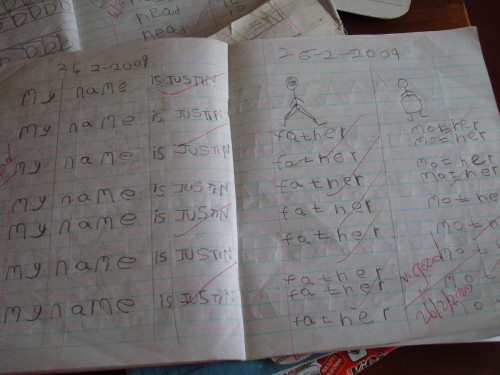 head
head
24.2-2009
my name is JUSTIN
my name is JUSTIN
my name is JUSTIN
my name is JUSTIN
my name is JUSTIN
my name is JUSTIN
my name is JUSTIN
25-2-2009
father mother
mother
father mother
father mother
father mother
father mot
father
father
father
v.good
26/2/2009